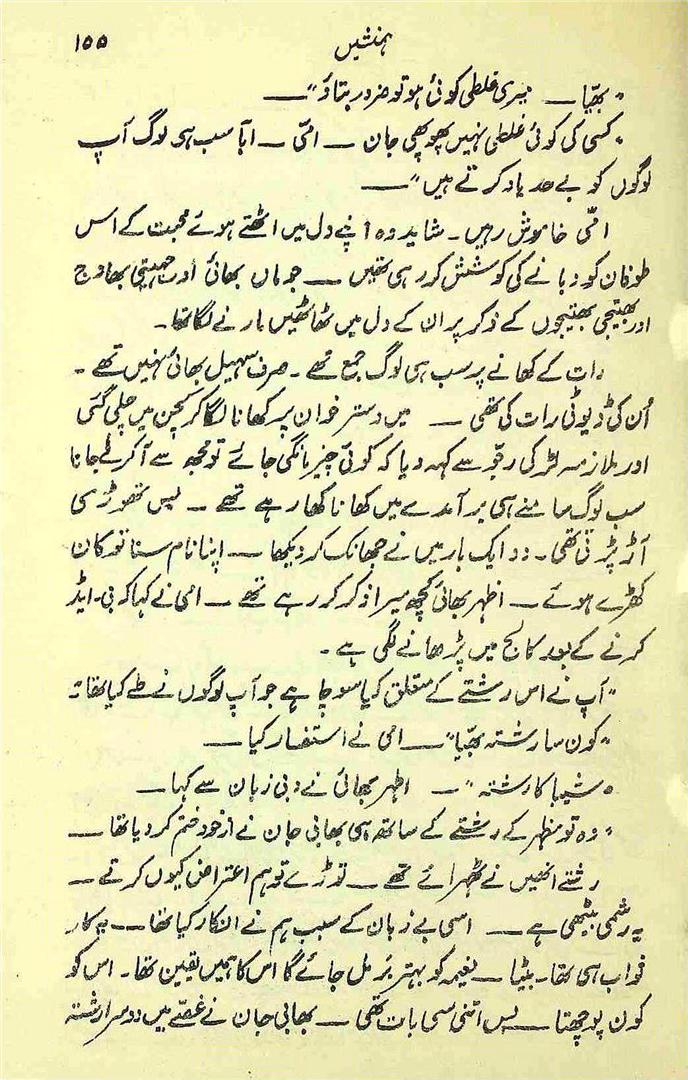 ہمنشیں ۱۵۵
"بھیّا — میری غلطی کوئی ہو تو ضرور بتاؤ" —
"کسی کی کوئی غلطی نہیں پھوپھی جان — امّی — ابّا سب ہی لوگ آپ
لوگوں کو بے حد یاد کرتے ہیں" —
امّی خاموش رہیں۔ شاید وہ اپنے دل میں اٹھتے ہوئے محبت کے اس
طوفان کو دبانے کی کوشش کر رہی تھیں — جو ماں بھائی اور چہیتی بھاوج
اور بھتیجی بھتیجوں کے ذکر پر ان کے دل میں ٹھاٹھیں مارنے لگا تھا۔
رات کے کھانے پر سب ہی لوگ جمع تھے۔ صرف سہیل بھائی نہیں تھے۔
اُن کی ڈیوٹی رات کی تھی — میں دستر خوان پر کھانا لگا کر کچن میں چلی گئی
اور ملازمہ لڑکی رقبو سے کہہ دیا کہ کوئی چیز مانگی جائے تو مجھ سے آ کر لے جانا
سب لوگ سامنے ہی برآمدے میں کھانا کھا رہے تھے۔ بس تھوڑی سی
آڑ پڑتی تھی۔ دو ایک بار میں نے جھانک کر دیکھا — اپنا نام سنا تو کان
کھڑے ہوئے — اظہر بھائی کچھ میرا ذکر کر رہے تھے — امی نے کہا کہ بی۔ ایڈ
کرنے کے بعد کالج میں پڑھانے لگی ہے۔
"آپ نے اس رشتے کے متعلق کیا سوچا ہے جو آپ لوگوں نے طے کیا تھا؟"
"کون سا رشتہ بھیّا" — امی نے استفسار کیا —
"شیبا کا رشتہ" — اظہر بھائی نے دبی زبان سے کہا —
"وہ تو مظہر کے رشتے کے ساتھ ہی بھابی جان نے از خود ختم کر دیا تھا —
رشتے انھیں نے ٹھہرائے تھے — توڑے تو ہم اعتراض کیوں کرتے —
یہ رشمی بیٹھی ہے — اسی بے زبان کے سبب ہم نے انکار کیا تھا — بے کار
خواب ہی تھا۔ بیٹا — نعیمہ کو بہتر بَر مل جائے گا اس کا ہمیں یقین تھا۔ اس کو
کون پوچھتا — بس اتنی سی بات تھی — بھابی جان نے غصّے میں دوسرا رشتہ